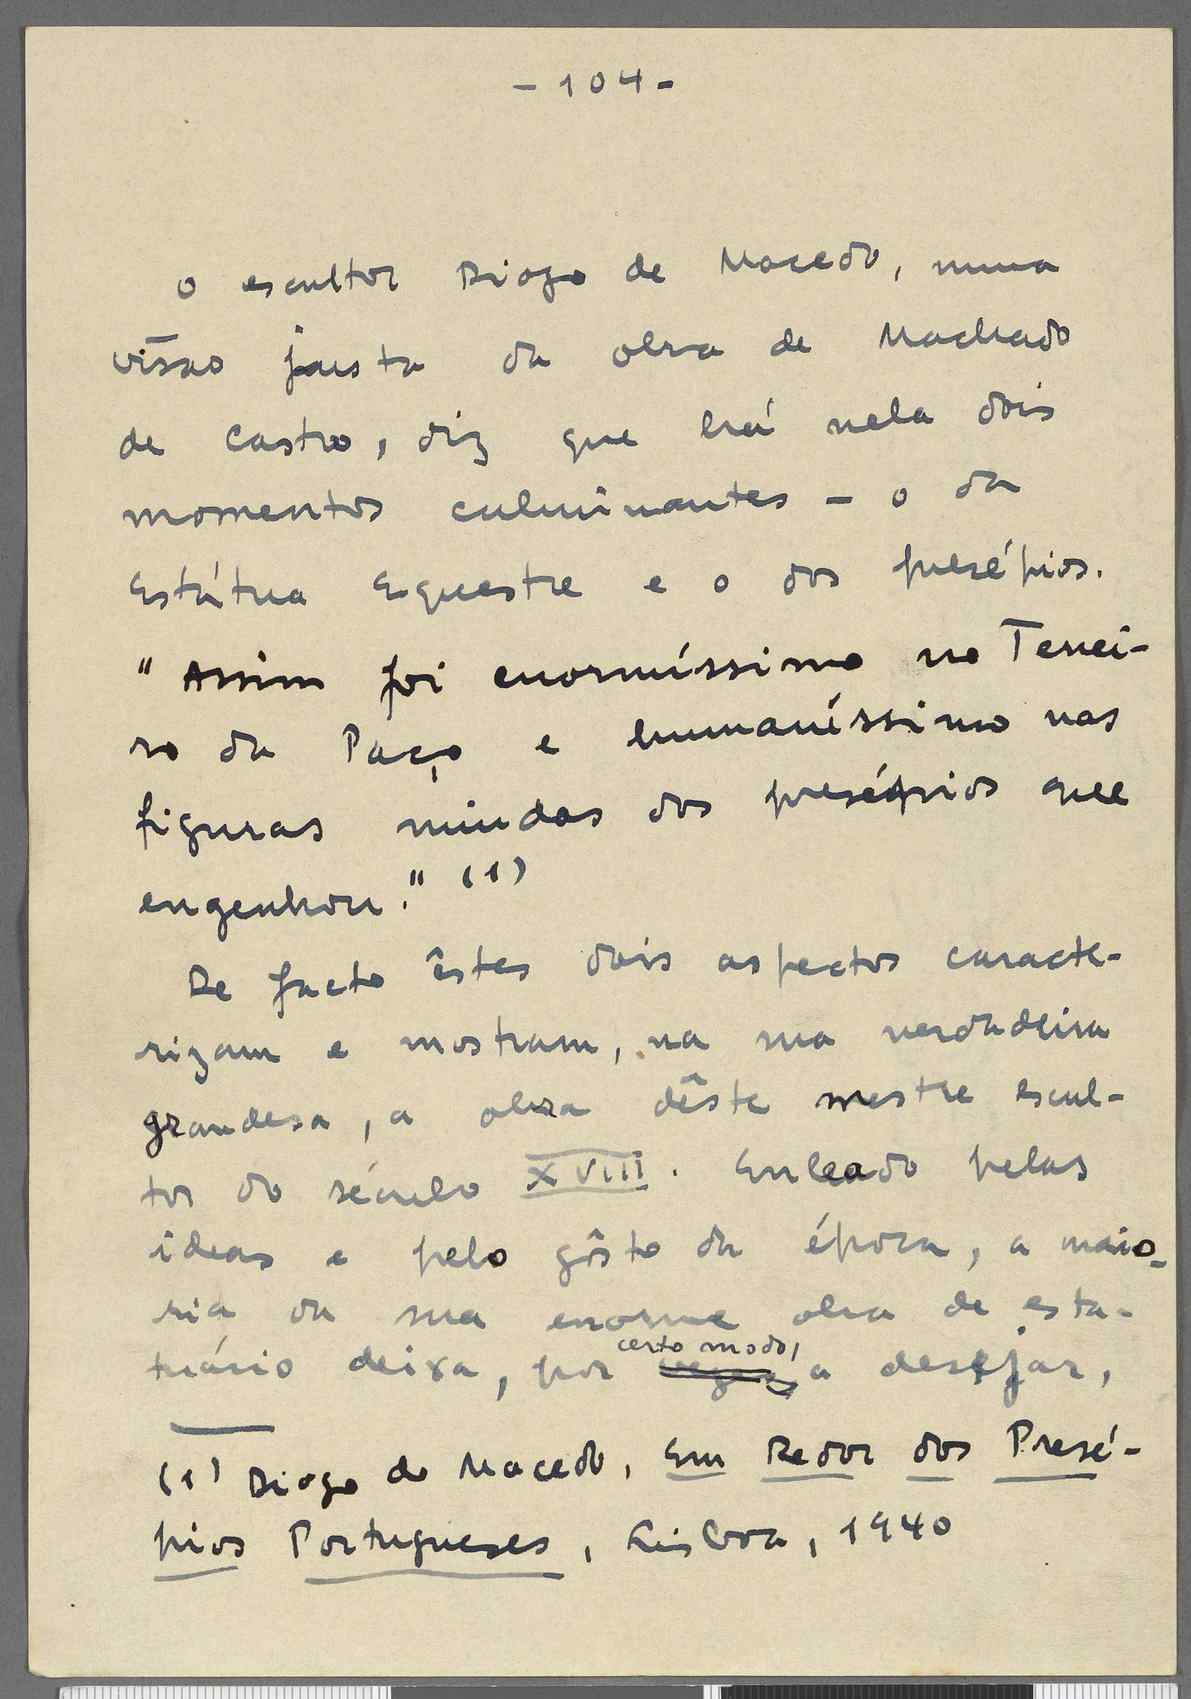 - 104 -
O escultor Diogo de Macedo, numa
visão justa da obra de Machado
de Castro, diz que há nela dois
momentos culminantes - o da
Estátua Equestre e o dos presépios.
"Assim foi enormíssimo no Terrei-
ro do Paço e humaníssimo nas
figuras miudas dos presépios que
engenhou." (1)
De facto êstes dois aspectos caracte-
rizam e mostram, na sua verdadeira
grandesa, a obra dêste mestre escul-
tor do século XVIII. Enleado pelas
ideas e pelo gôsto da época, a maio-
ria da sua enorme obra de esta-
certo modo,
tuário deixa, por vezes, a desejar,
(1) Diogo de Macedo, Em Redor dos Presé-
pios Portugueses, Lisboa, 1940